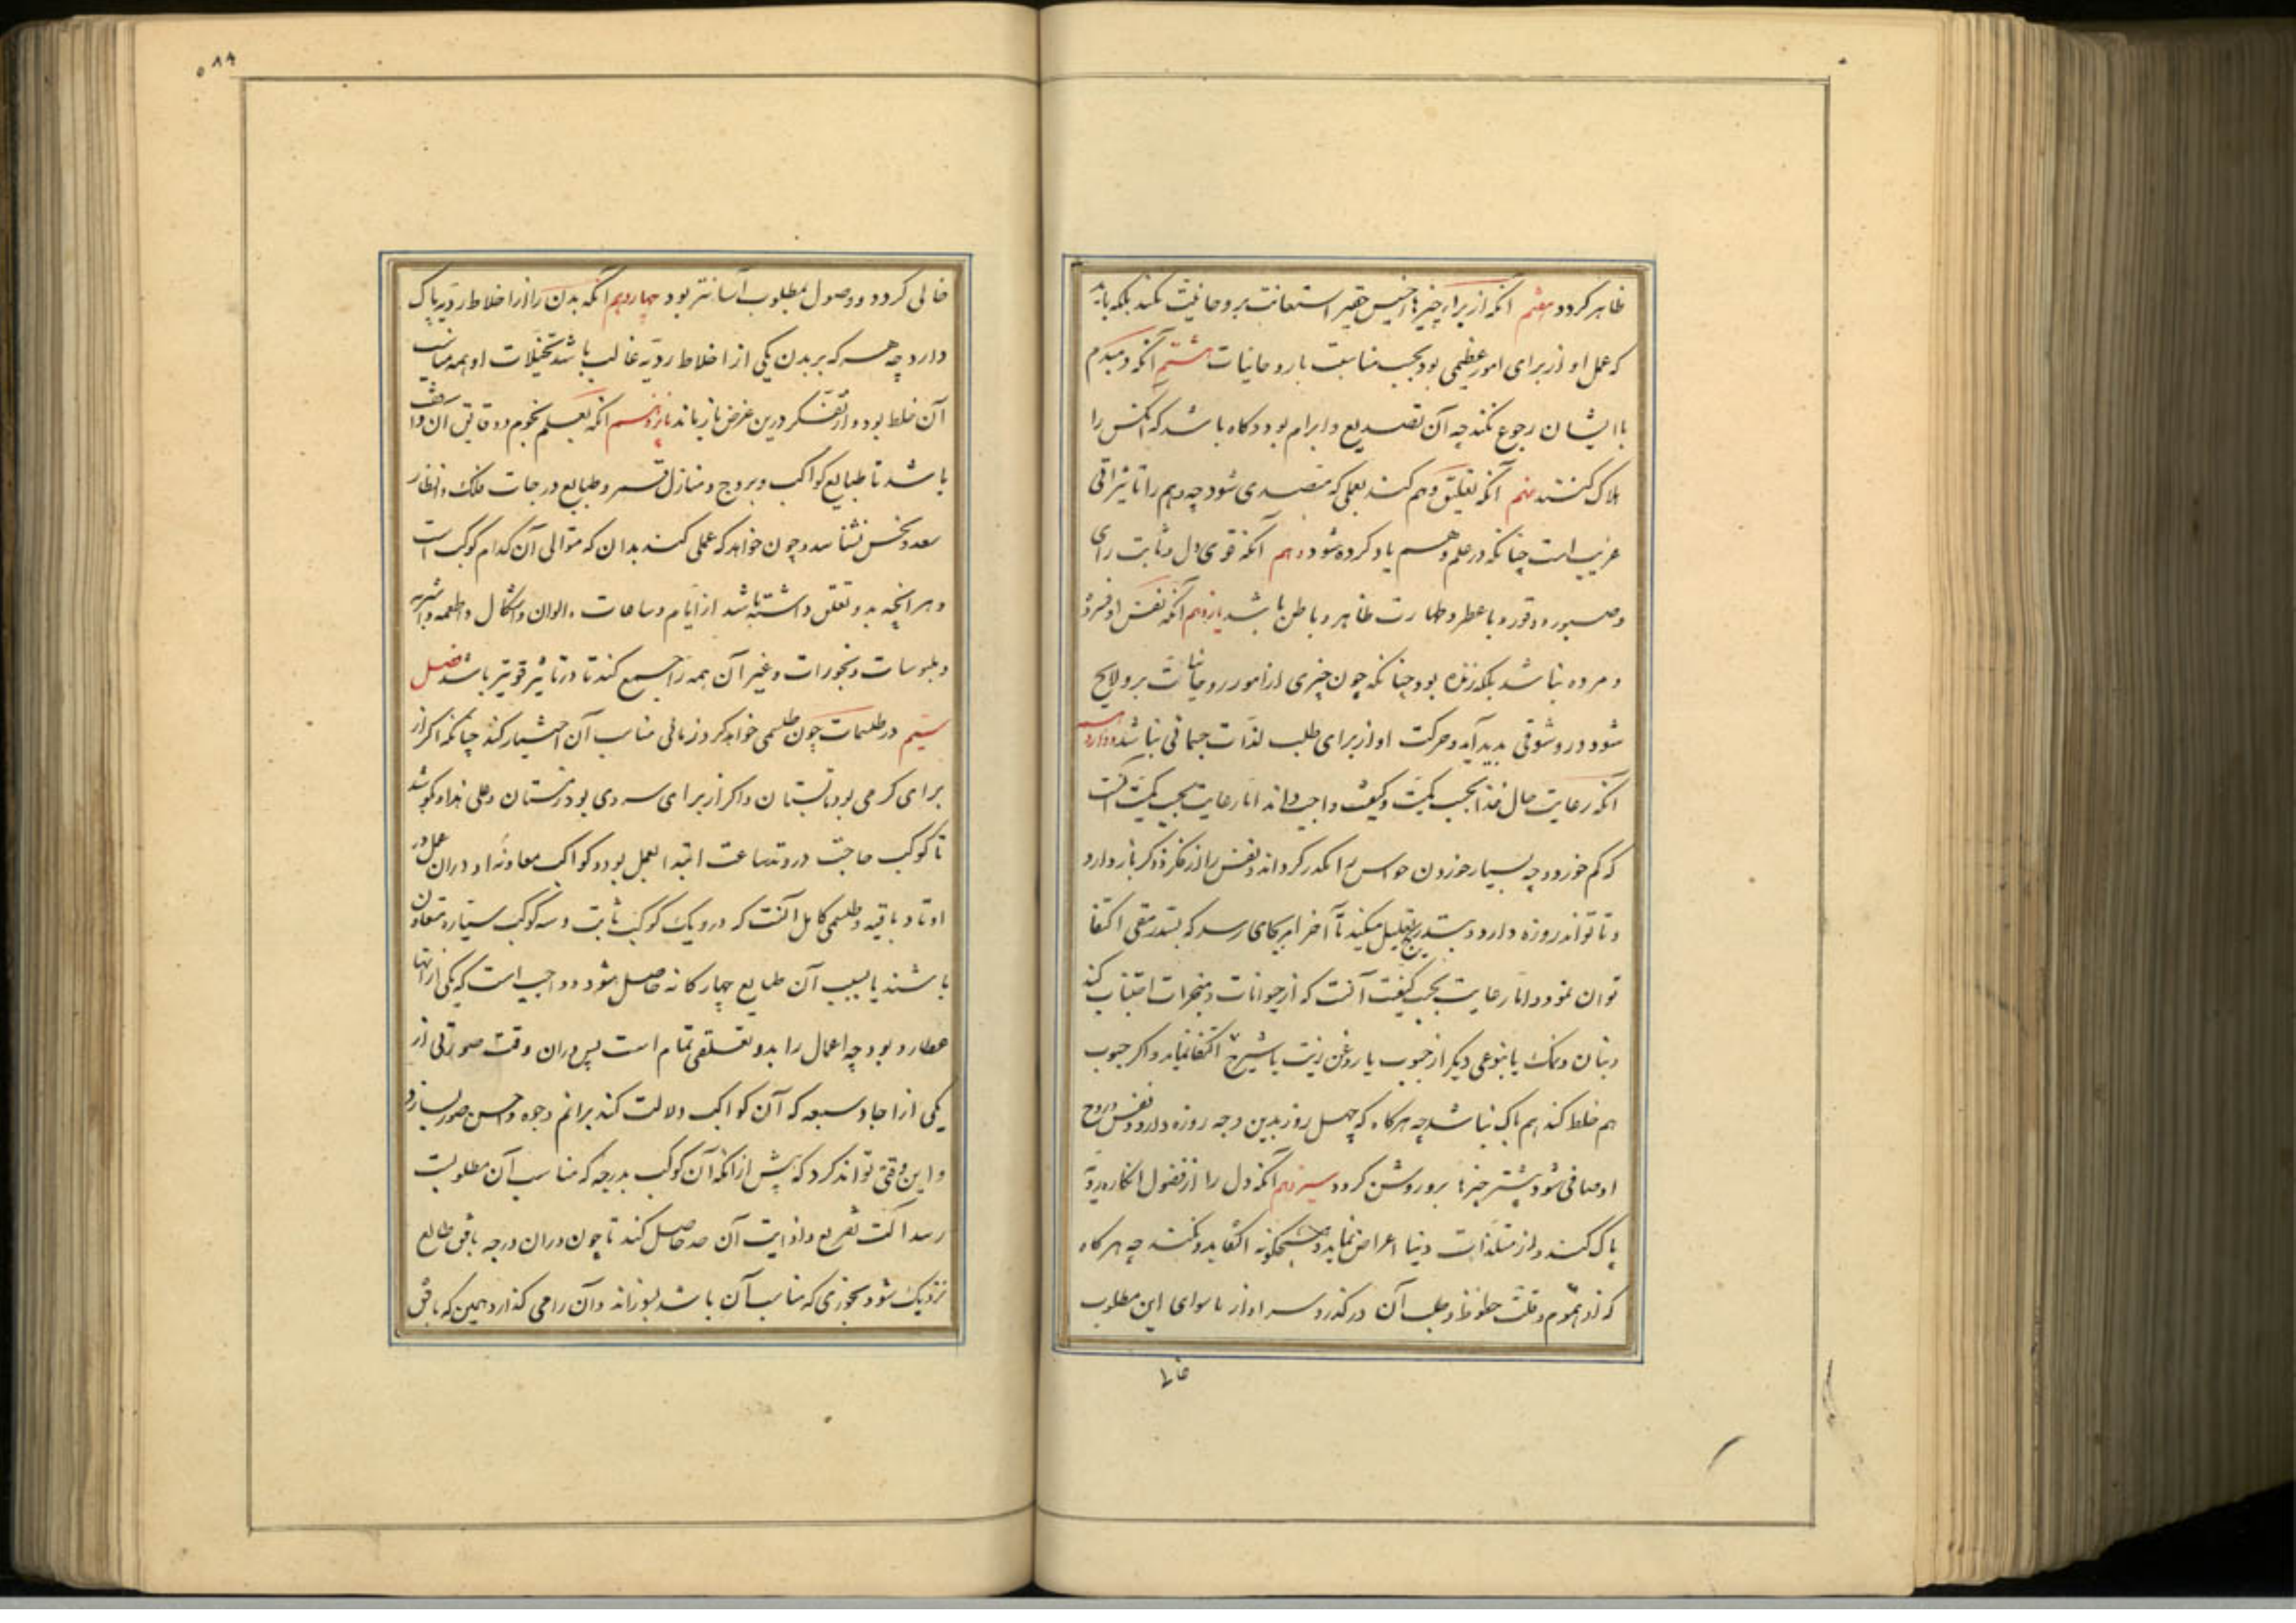 ظاهر کردد هفتم آنکه از برای چیزهاء خسیس حقیر استعانت بروحانیت نکند بلکه باید
که عمل او از برای امور عظیمی بود بحسب مناسبت با روحانیات هشتم آنکه دمبدم
با ایشان رجوع نکند چه آن تصدیع و ابرام بود و کاه باشد که آنکس را
هلاک کنند نهم آنکه تعلیق وهم کند بعملی که متصدی شود چه وهم را تاثیراتی
غریب است چنانکه در علم وهم یاد کرده شود دهم آنکه قوی دل و ثابت رای
و صبور و وقور و باعطر و طهارت ظاهر و باطن باشد یازدهم آنکه نفس او فسرده
و مرده نباشد بلکه زنده بود چنانکه چون چیزی از امور روحانیات برو لایح
شود درو شوقی پدید آید و حرکت او از برای طلب لذات جسمانی نباشد دوازدهم
آنکه رعایت حال غذا بحسب کمیت و کیفیت واجب داند اما رعایت بحسب کمیت آنست
که کم خورد چه بسیار خوردن حواس را مکدر کرداند و نفس را از فکر و ذکر باز دارد
و تا تواند روزه دارد و بتدریج تقلیل میکند تا آخر امر بجای رسد که بسد رمقی اکتفا
توان نمود و اما رعایت بحسب کیفیت آنست که از حیوانات و مبخرات اجتناب کند
و بنان و نمک یا بنوعی دیکر از حبوب یا روغن زیت یا شیرج اکتفا نماید و اکر حبوب
هم خلط کند هم باک نباشد چه هرکاه که چهل روز بدین وجه روزه دارد و نفس و روح
او صافی شود بیشتر چیزها برو روشن کردد سیزدهم آنکه دل را از فضول افکار ردیه
پاک کند و از مستلذات دنیا اعراض نماید و هیچکونه التفات بدو نکند چه هرکاه
که از هموم و قلت حظوظ و طلب آن در کذرد سر او از ماسوای این مطلوب
خالی
۵۸۹
خالی کردد و وصول بمطلوب آسانتر بود چهاردهم آنکه بدن را از اخلاط ردیه پاک
دارد چه هر که بر بدن یکی از اخلاط ردیه غالب باشد تخیلات او همه مناسب
آن خلط بود و از تفکر درین غرض باز ماند پانزدهم آنکه بعلم نجوم و دقایق آن واقف
باشد تا طبایع کواکب و بروج و منازل قمر و طبایع درجات فلک و انظار
سعد و نحس بشناسد و چون خواهد که عملی کند بداند که متوالی آن کدام کوکب است
و هر آنچه بدو تعلق داشته باشد از ایام و ساعات و الوان و اشکال و اطعمه و اشربه
و ملبوسات و بخورات و غیر آن همه را جمع کند تا در تاثیر قویتر باشد فصل
سیم در طلسمات چون طلسمی خواهد کرد زمانی مناسب آن اختیار کند چنانکه اکر از
برای کرمی بود تابستان و اکر از برای سردی بود زمستان و علی هذا و بکوشد
تا کوکب حاجت در وتد ساعت ابتدا العمل بود و کواکب معاونه او در آن عمل در
اوتاد باقیه و طلسمی کامل آنست که درو یک کوکب ثابت و سه کوکب سیاره متعاون
باشند یا بسبب آن طبایع چهارکانه حاصل شود و واجب است که یکی از آنها
عطارد بود چه اعمال را بدو تعلقی تمام است پس در آن وقت صورتی از
یکی از اجساد سبعه که آن کواکب دلالت کند بر اتم وجوه و احسن صور بسازد
و این وقتی تواند کرد که پیش از آنکه آن کوکب بدرجه که مناسب آن مطلوبست
رسد آلت تفریع و اذابت آن حاصل کند تا چون در آن درجه بافق طالع
نزدیک شود بخوری که مناسب آن باشد بسوزاند و آن را می کذارد همین که بافق